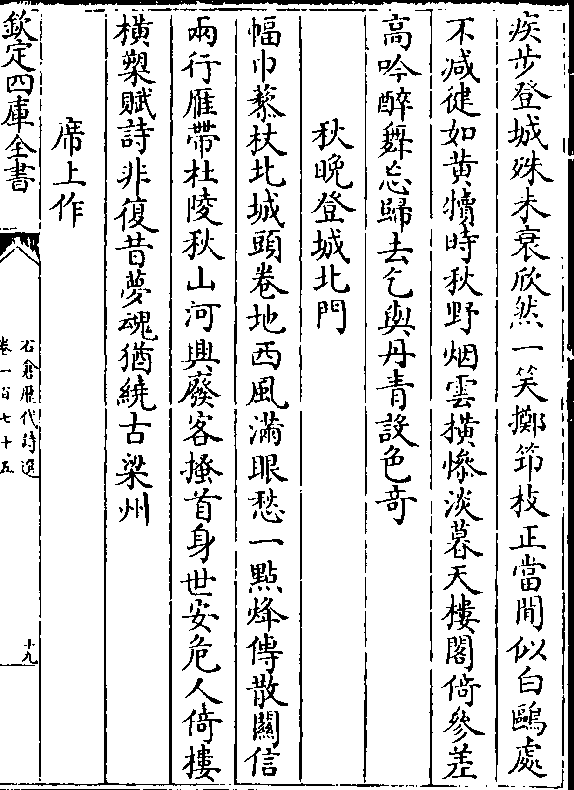 疾步登城殊未衰欣然一笑擲笻枝正當閒似白鷗處
不减健如黄犢時秋野烟雲横惨淡暮天樓閣倚參差
高吟醉舞忘歸去乞與丹青設色竒
秋晚登城北門
幅巾藜杖北城頭卷地西風滿眼愁一點烽傳散關信
兩行雁帶杜陵秋山河興廢客搔首身世安危人倚樓
横槊賦詩非復昔夢魂猶繞古梁州
席上作
欽定四庫全書
石倉歷代詩選
卷一百七十五
十九